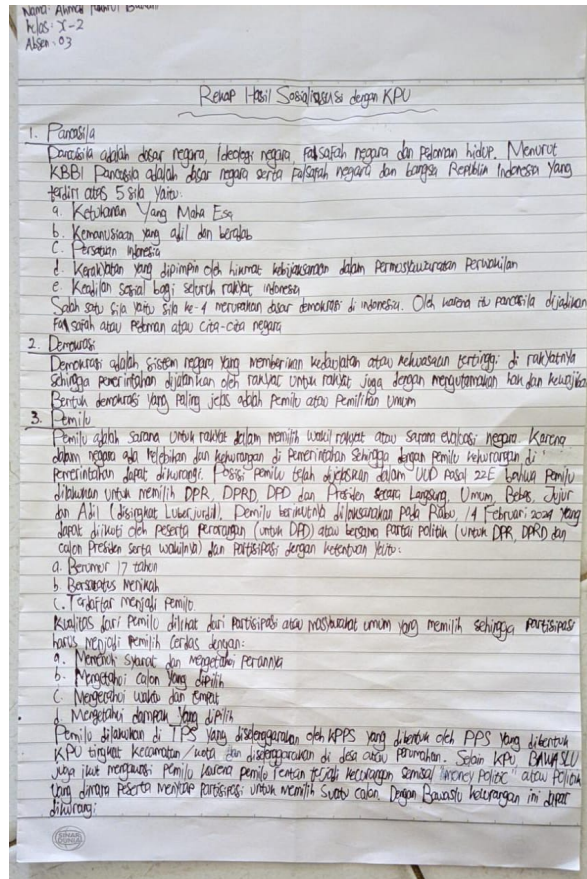 Nama: Ahmad
Kelas: X-2
Absen: 03
Rekap Hasil Sosialisasi dengan KPU
1. Pancasila
Pancasila adalah dasar negara, Ideologi negara, Falsafah negara dan pedoman hidup. Menurut
KBBI Pancasila adalah dasar negara serta Falsafah negara dan bangsa Republik Indonesia Yang
terdiri atas 5 sila Yaitu:
a. Ketuhanan Yang Maha Esa
b. Kemanusiaan yang adil dan beradab
c. Persatuan indonesia
d. Kerakyatan yang dipimpin oleh hikmat kebijaksanaan dalam Permusyawaratan Perwakilan
e. Keadilan sosial bagi seluruh rakyat indonesia
Salah satu sila yaitu sila ke-4 merupakan dasar demokrasi di indonesia. Oleh karena itu pancasila dijadikan
Falsafah atau Pedoman atau cita-cita negara
2. Demokrasi
Demokrasi adalah sistem negara Yang memberikan kedaulatan atau kekuasaan tertinggi di rakyatnya
sehingga pemerintahan dijalankan oleh rakyat untuk rakyat juga dengan mengutamakan hak dan kewajiban
Bentuk demokrasi Yang paling jelas adalah Pemilu atau Pemilihan Umum
3. Pemilu
Pemilu adalah sarana untuk rakyat dalam memilih wakil rakyat atau sarana evaluasi negara. Karena
dalam negara ada kelebihan dan kekurangan di Pemerintahan sehingga dengan pemilu kekurangan di
Pemerintahan dapat dikurangi. Posisi pemilu telah dijelaskan dalam UUD Pasal 22E bahwa pemilu
dilakukan untuk memilih DPR, DPRD, DPD dan Presiden secara Langsung, Umum, Bebas, Jujur
dan Adil (disingkat Luberjurdil). Pemilu berikutnya dilaksanakan Pada Rabu, 14 Februari 2024 Yang
dapat diikuti oleh peserta Perorangan (untuk DPD) atau bersama Partai Politik (untuk DPR, DPRD dan
calon Presiden serta wakilnya) dan Partisipasi dengan ketentuan Yaitu:
a. Berumur 17 tahun
b. Berstatus Menikah
c. Terdaftar menjadi Pemilih
Kualitas dari Pemilu dilihat dari Partisipasi atau masyarakat umum yang memilih sehingga Partisipasi
harus menjadi Pemilih Cerdas dengan:
a. Memenuhi syarat dan mengetahui Perannya
b. Mengetahui calon Yang dipilih
c. Mengetahui waktu dan tempat
d. Mengetahui dampak Yang dipilih
Pemilu dilakukan di TPS Yang diselenggarakan oleh KPPS yang dibentuk oleh PPS Yang dibentuk
KPU tingkat kecamatan/kota dan diselenggarakan di desa atau Perumahan. Selain KPU BAWASLU
juga ikut mengawasi Pemilu karena pemilu rentan terjadi kecurangan semisal "money Politic" atau Politik
Yang dimana Peserta Partisipasi untuk memilih Suatu calon. Dengan Bawaslu kecurangan ini dapat
dikurangi
SINAR DUNIA